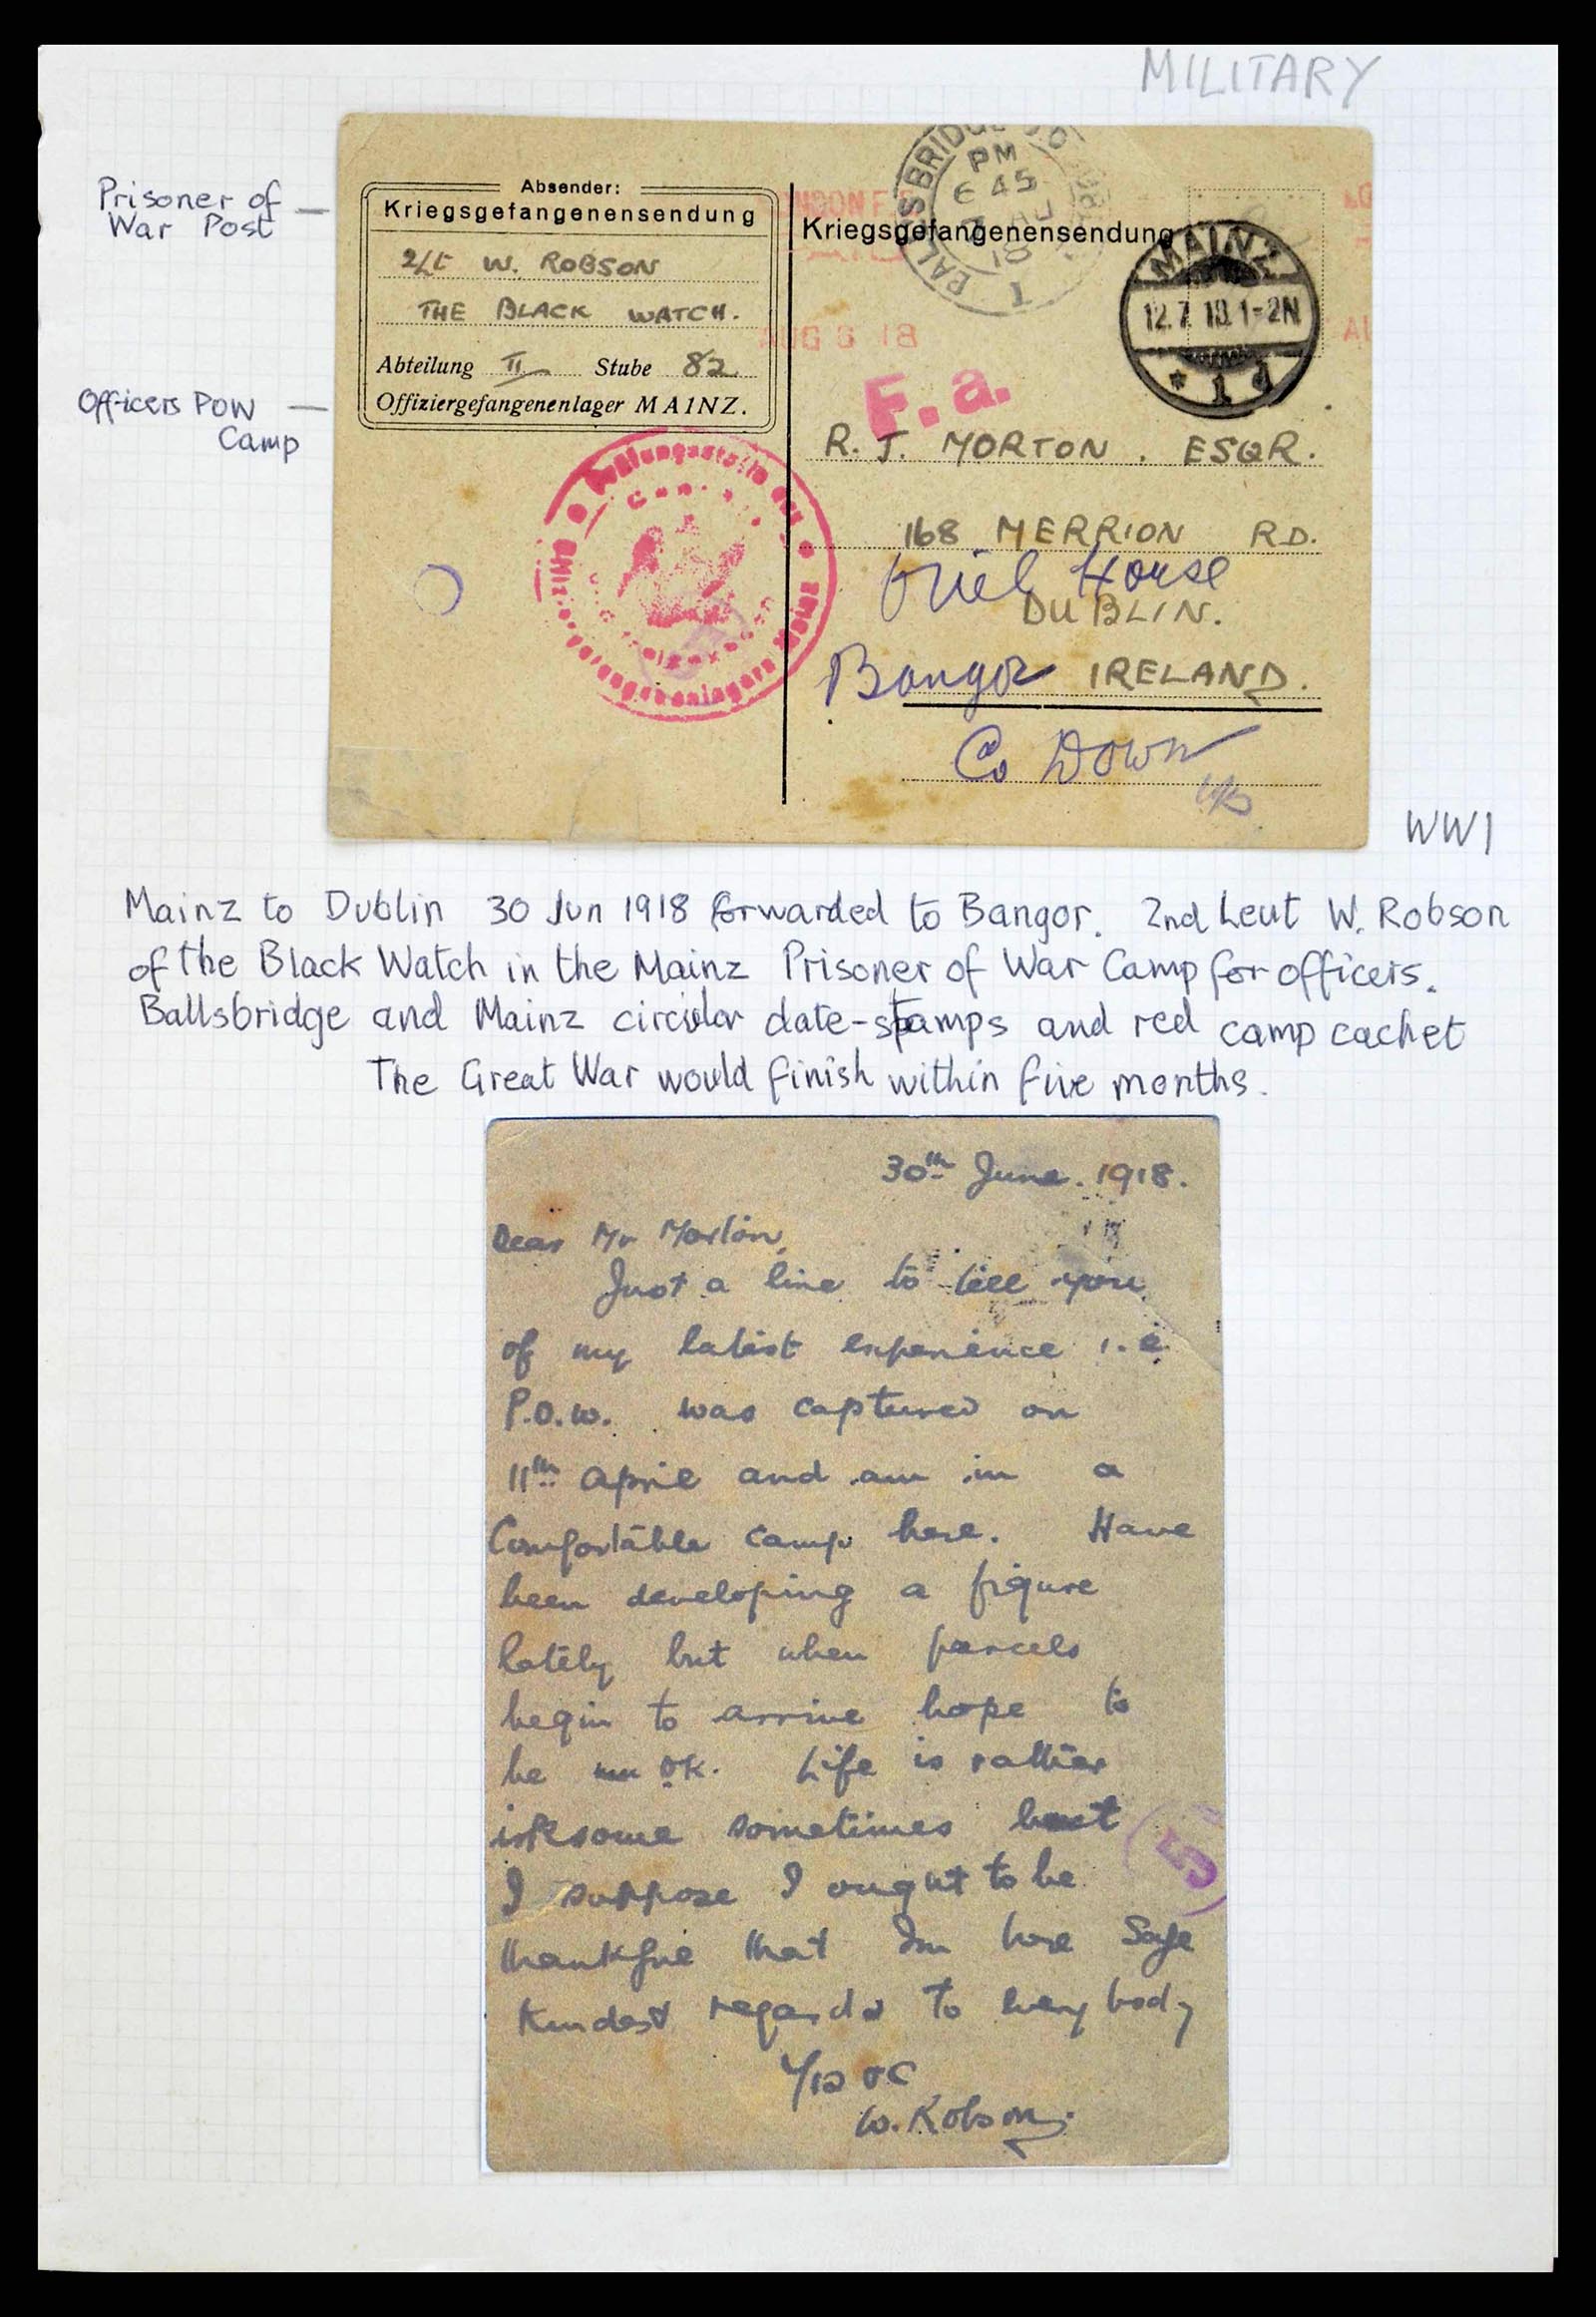 MILITARY
Prisoner of
War Post
Officers POW
Camp
Absender:
Kriegsgefangenensendung
2/Lt W. ROBSON
THE BLACK WATCH.
Abteilung II Stube 82
Offiziergefangenenlager MAINZ.
Kriegsgefangenensendung
PM
6 45
AU
18
AUG 6 18
MAINZ
12.7.18.1-2N
* 1 d
F. a.
R. J. MORTON. ESQR.
168 MERRION RD.
Oriel House
DUBLIN.
Bangor IRELAND.
Co Down
WW1
Mainz to Dublin 30 Jun 1918 forwarded to Bangor. 2nd Leut W. Robson
of the Black Watch in the Mainz Prisoner of War Camp for officers.
Ballsbridge and Mainz circular date-stamps and red camp cachet
The Great War would finish within five months.
30th June. 1918.
Dear Mr Morton,
Just a line to tell you
of my latest experience i.e
P.O.W. was captured on
11th April and am in a
Comfortable camp here. Have
been developing a figure
lately but when parcels
begin to arrive hope to
be OK. Life is rather
irksome sometimes but
I suppose I ought to be
thankful that Im here Safe
Kindest regards to every body
W. Robson.
5